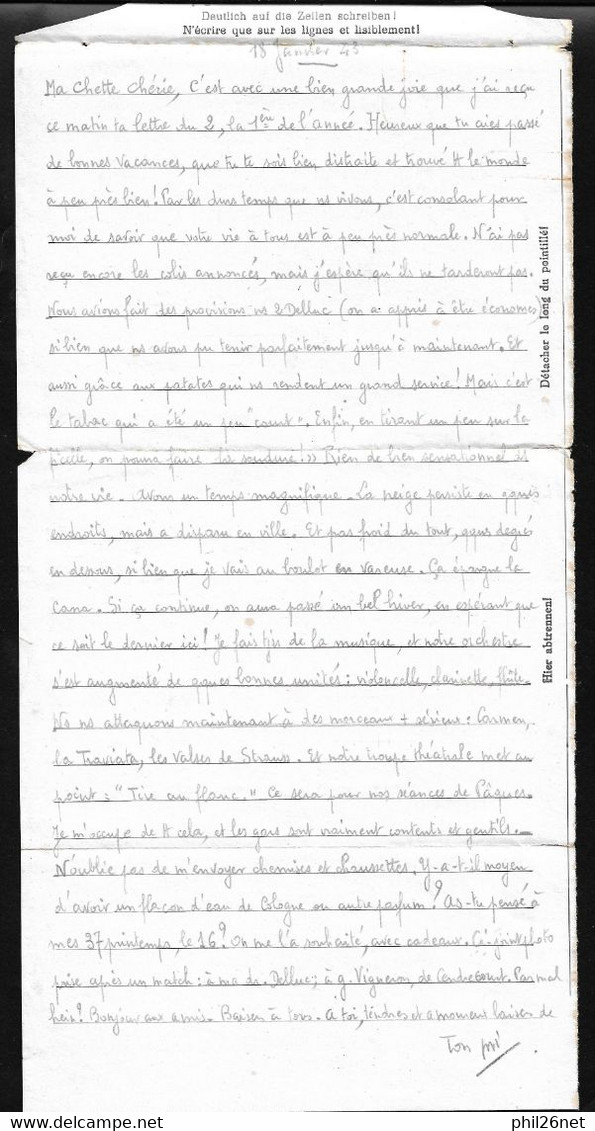 Deutlich auf die Zeilen schreiben!
N'écrire que sur les lignes et lisiblement!
18 Janvier 43
Ma Chette Chérie, C'est avec une bien grande joie que j'ai reçu
ce matin ta lettre du 2, la 1ère de l'année. Heureux que tu aies passé
de bonnes vacances, que tu te sois bien distraite et trouvé tt le monde
à peu près bien! Par les durs temps que ns vivons, c'est consolant pour
moi de savoir que votre vie à tous est à peu près normale. N'ai pas
reçu encore les colis annoncés, mais j'espère qu'ils ne tarderont pas.
Nous avions fait des provisions ns 2 Delluc (on a appris à être économes)
si bien que ns avons pu tenir parfaitement jusqu'à maintenant. Et
aussi grâce aux patates qui ns rendent un grand service! Mais c'est
le tabac qui a été un peu "court". Enfin, en tirant un peu sur la
ficelle, on pourra faire la soudure!» Rien de bien sensationnel ds
notre vie. Avons un temps magnifique. La neige persiste en qques
endroits, mais a disparu en ville. Et pas froid du tout, qques degrés
en dessous, si bien que je vais au boulot en vareuse. Ça épargne la
cana. Si ça continue, on aura passé un bel hiver, en espérant que
ce soit le dernier ici! Je fais tjs de la musique, et notre orchestre
s'est augmenté de qques bonnes unités: violoncelle, clarinette, flûte.
Ns ns attaquons maintenant à des morceaux + sérieux: Carmen,
la Traviata, les Valses de Strauss. Et notre troupe théâtrale met au
point: "Tire au flanc." Ce sera pour nos séances de Pâques.
Je m'occupe de tt cela, et les gars sont vraiment contents et gentils.
N'oublie pas de m'envoyer chemises et chaussettes. Y-a-t-il moyen
d'avoir un flacon d'eau de Cologne ou autre parfum? As-tu pensé à
mes 37 printemps, le 16? On me l'a souhaité, avec cadeaux. Ci-joint photo
prise après un match: à ma dr. Delluc; à g. Vigneron, de Cendrecourt. Pas mal
hein? Bonjour aux amis. Baisers à tous. A toi, tendres et amoureux baisers de
Ton
Détacher le long du pointillé!
Hier abtrennen!
phil26net
delcampe.net